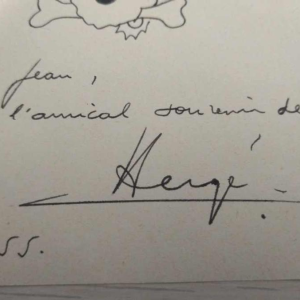 Jean,
l'amical souvenir de
Hergé
55.